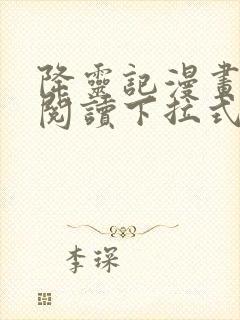 降靈記漫畫
閱讀下拉式
李琛